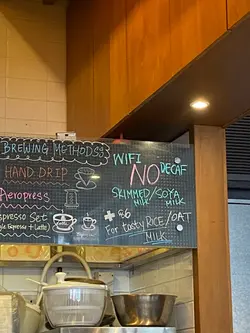 BREWING METHODS
HAND DRIP
Aeropress
Espresso Set
Espresso + Latte)
WIFI
NO DECAF
SKIMMED/SOYA
MILK MILK
+ 86
For tasty RICE/OAT
MILK